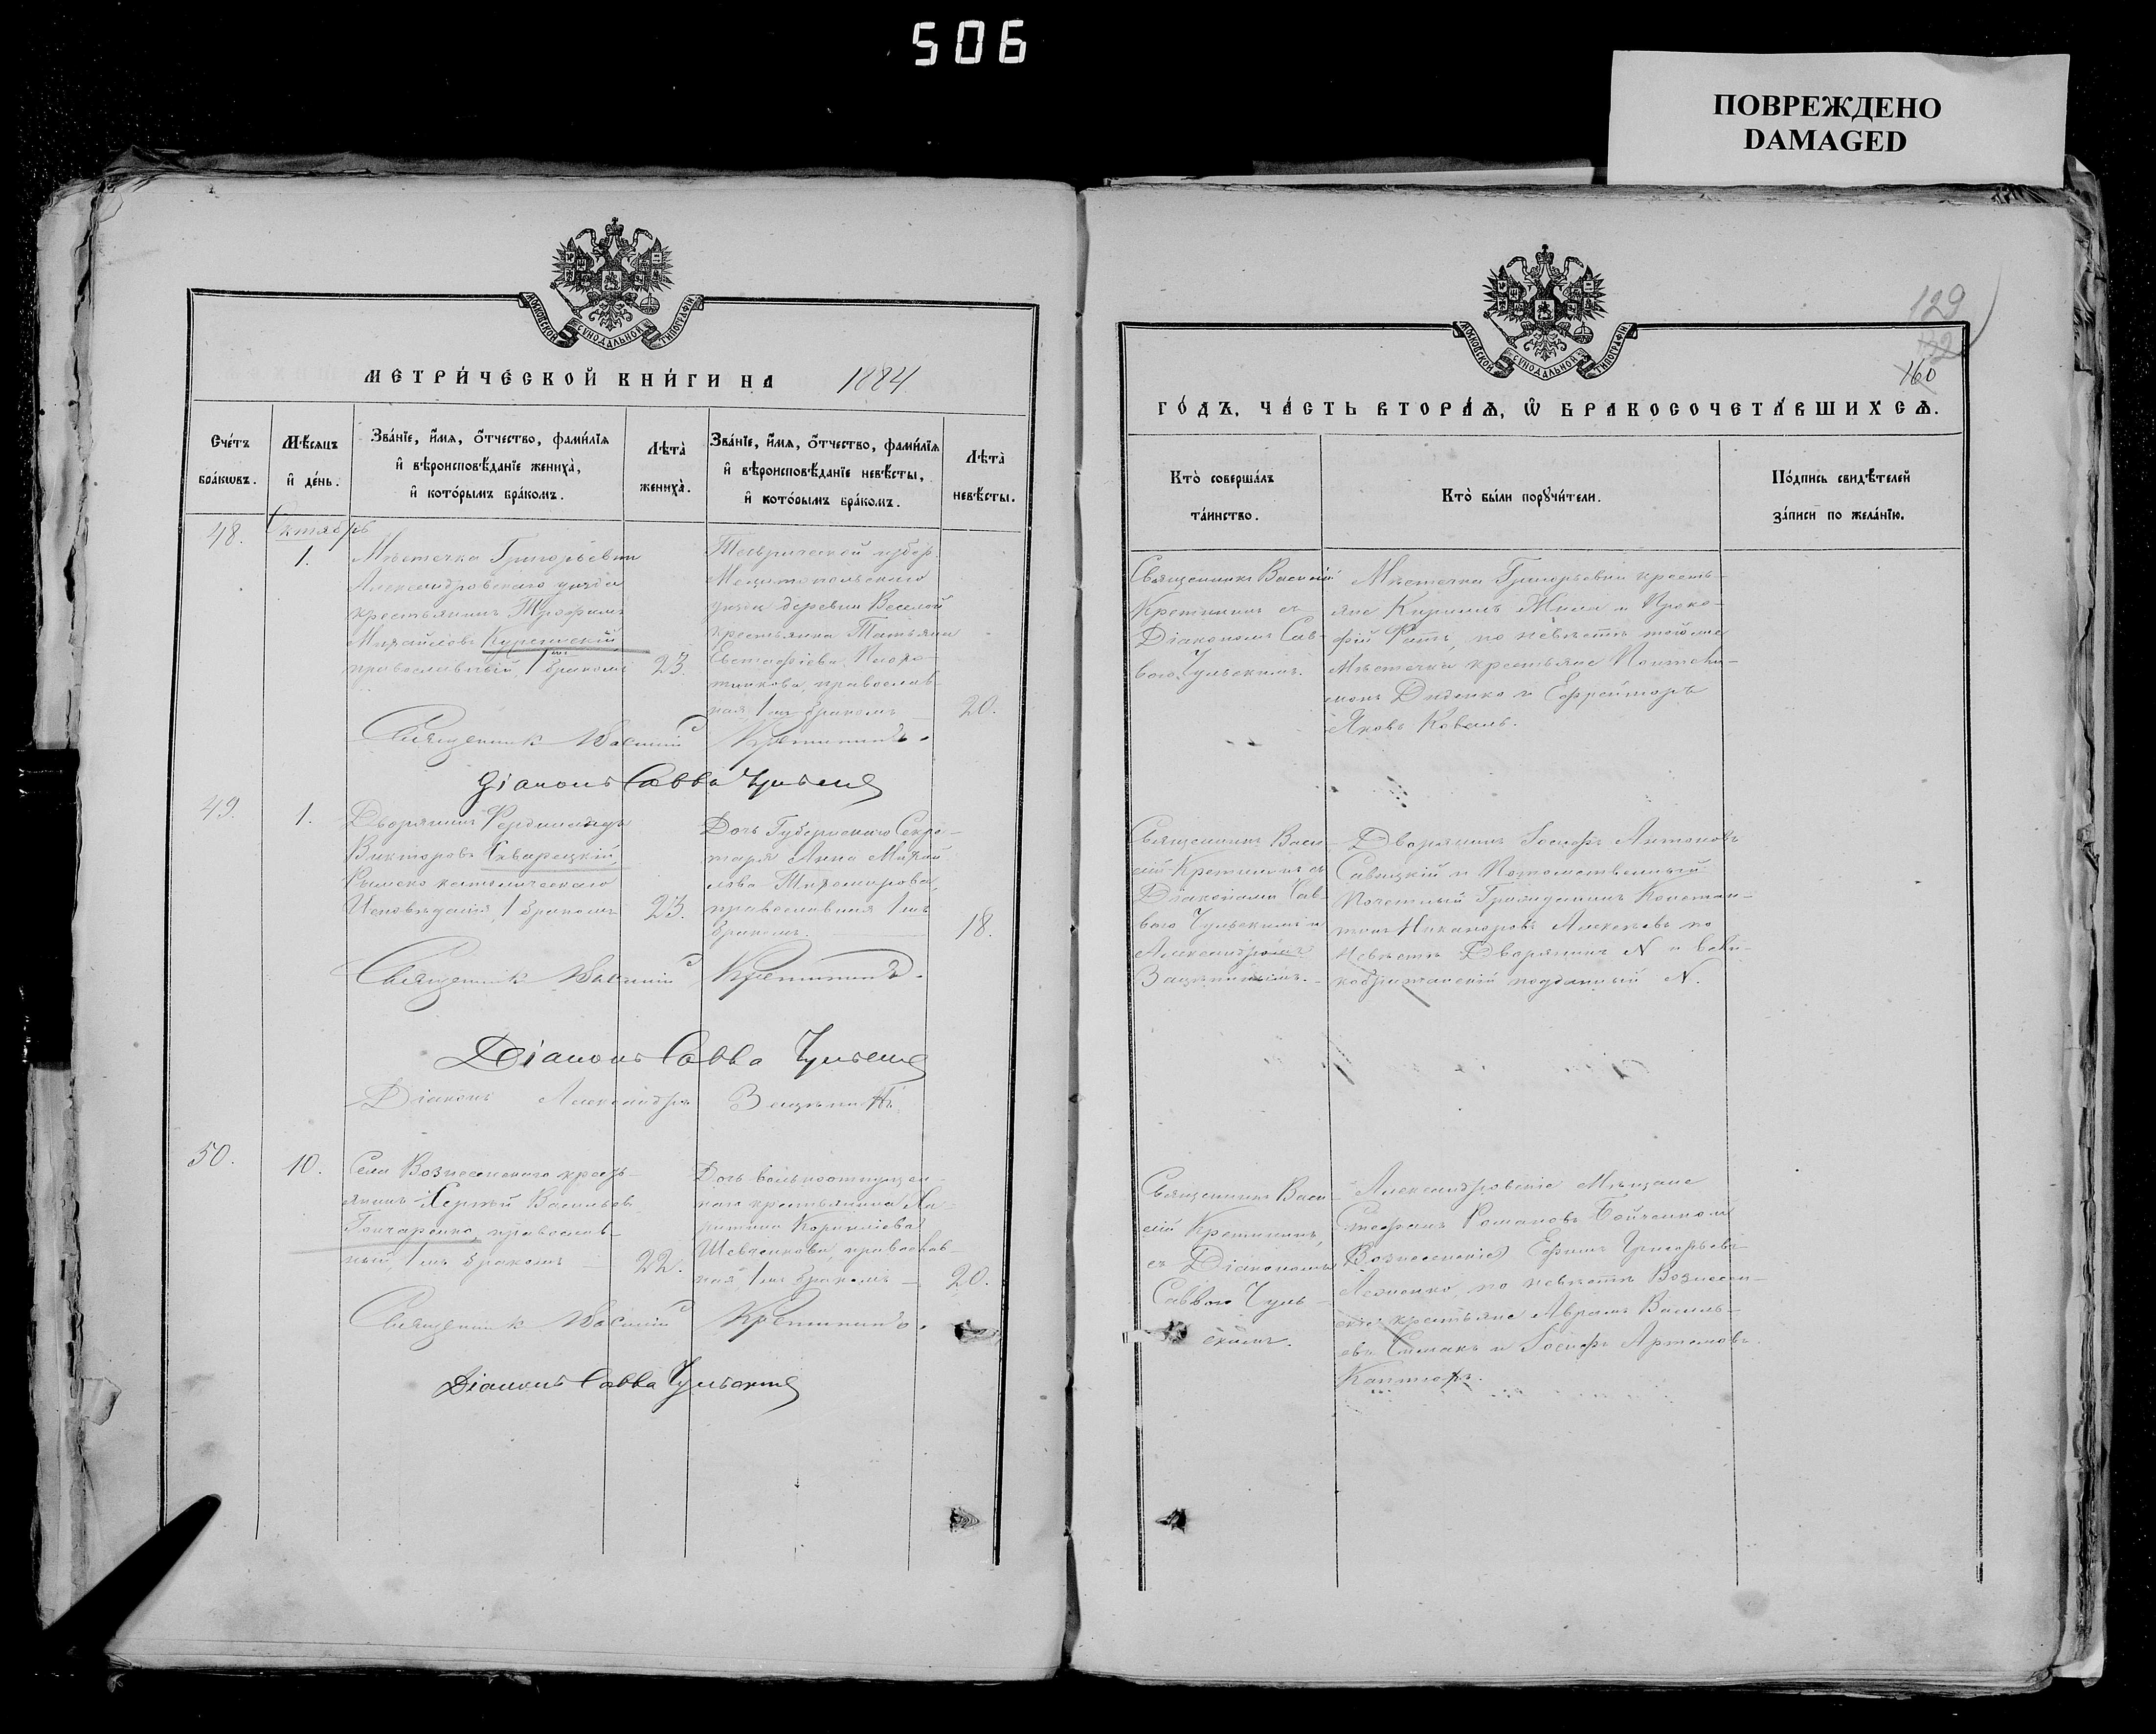 506
ПОВРЕЖДЕНО
DAMAGED
МОСКОВСКОЙ СѴНОДАЛЬНОЙ ТИПОГРАФІИ
МЕТРИ́ЧЕСКОЙ КНИ́ГИ НА 1884
Сче́тъ бра́кѡвъ.
Мѣ́сяцъ и҆ де́нь.
Зва́нїе, и҆́мя, ѻ҆́тчество, фами́лїя
и҆ вѣроисповѣ́данїе жениха̀,
и҆ кото́рымъ бра́комъ.
Лѣта̀ жениха̀.
Зва́нїе, и҆́мя, ѻ҆́тчество, фами́лїя
и҆ вѣроисповѣ́данїе невѣ́сты,
и҆ кото́рымъ бра́комъ.
Лѣта̀ невѣ́сты.
48.
Октябрь
1.
Мѣстечка Григорьевки
Александровскаго уѣзда
крестьянинъ Трофимъ
Михайловъ
православный, 1мъ бракомъ
23.
Таврической губер.
Мелитопольскаго
уѣзда деревни Веселой
крестьянка Татьяна
Евстафіева
православ-
ная, 1мъ бракомъ
20.
Священникъ Василій Кретининъ.
Діаконъ Савва Чульскій
49.
1.
Дворянинъ Фердинандъ
Викторовъ
Римско католическаго
Исповѣданія, 1 бракомъ
23.
Дочь Губернскаго Секре-
таря Анна Михай-
лова Тихомирова,
православная 1мъ
бракомъ.
18.
Священникъ Василій Кретининъ.
Діаконъ Савва Чульскій
Діаконъ Александръ
50.
10.
Села Вознесенскаго кресть-
янинъ Сергѣй Васильевъ
Гончаренко, православ-
ный, 1мъ бракомъ
22.
Дочь вольноотпущен-
наго крестьянина Ха-
ритина Корниліева
Шевченкова, православ-
ная 1мъ бракомъ
20.
Священникъ Василій Кретининъ.
Діаконъ Савва Чульскій
129
160
МОСКОВСКОЙ СѴНОДАЛЬНОЙ ТИПОГРАФІИ
ГО́ДЪ, ЧА́СТЬ ВТОРА́Ѧ, Ѡ҆ БРАКОСОЧЕТА́ВШИХСѦ.
Кто̀ соверша́лъ
та́инство.
Кто̀ бы́ли порꙋчи́тели.
По́дпись свидѣ́телей
за́писи по жела́нїю.
Священникъ Василій
Кретининъ съ
Діакономъ Сав-
вою Чульскимъ.
Мѣстечка Григорьевки кресть-
яне Кириллъ и Проко-
фій по невѣстѣ тогоже
Мѣстечка крестьяне Пантеле-
монъ Диденко и Ефрейторъ
Яковъ Коваль.
Священникъ Васи-
лій Кретининъ съ
Діаконами Сав-
вою Чульскимъ и
Александромъ
Дворянинъ Іосифъ Антоновъ
Савицкій и Потомственный
Почетный Гражданинъ Констан-
тинъ Никаноровъ Алексѣевъ по
Невѣстѣ Дворянинъ N и Вели-
кобританскій подданный N.
Священникъ Васи-
лій Кретининъ,
съ Діакономъ
Саввою Чуль-
скимъ.
Александровскіе Мѣщане
Стефанъ Романовъ Бойченко и
Вознесенскіе Ефимъ Григорьевъ
по невѣстѣ Вознесен-
скіе крестьяне Аврамъ Василь-
евъ и Іосифъ Артемовъ